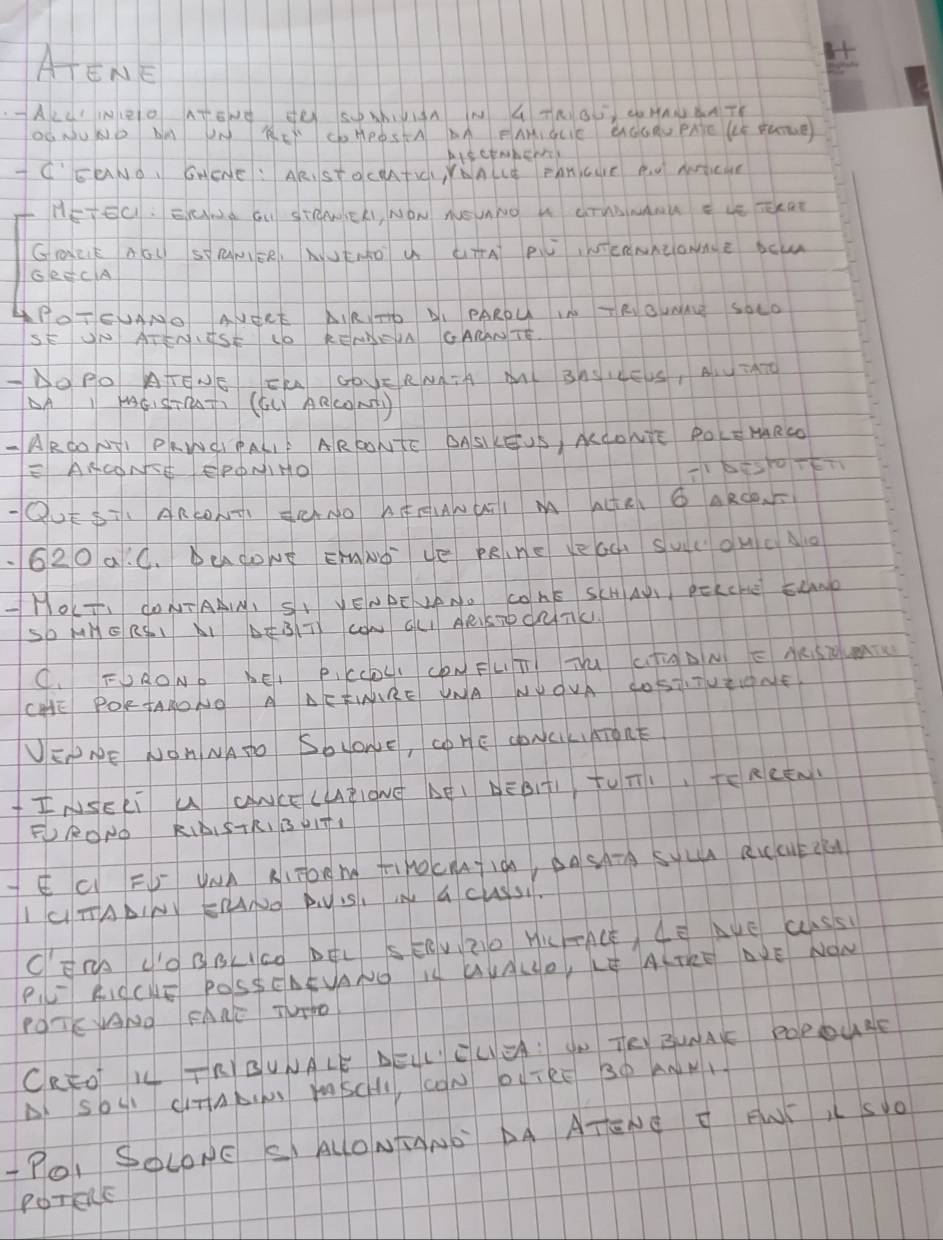 ATENE
- ALL' INIZIO ATENE ERA SUDDIVISA IN 4 TRIBÙ, COMANDATE
OGNUNO DA UN "RE" COMPOSTA DA FAMIGLIE RAGGRUPATE (LE FRATRIE)
DISCENDENTI
- C'ERANO I GHENE: ARISTOCRATICI, DALLE FAMIGLIE PIÙ ANTICHE
- METECI: ERANO GLI STRANIERI, NON AVEVANO LA CITTADINANZA E LE TERRE
GRAZIE AGLI STRANIERI DIVENTÒ LA CITTÀ PIÙ INTERNAZIONALE DELLA
GRECIA
POTEVANO AVERE DIRITTO DI PAROLA IN TRIBUNALE SOLO
SE UN ATENIESE LO RENDEVA GARANTE.
- DOPO ATENE ERA GOVERNATA DAL BASILEUS, AIUTATO
DA I MAGISTRATI (GLI ARCONTI)
- ARCONTI PRINCIPALI: ARCONTE BASILEUS, ARCONTE POLEMARCO
E ARCONTE EPONIMO
- I DESMOTETI
- QUESTI ARCONTI ERANO AFFIANCATI DA ALTRI 6 ARCONTI
- 620 a.C. DRACONE EMANÒ LE PRIME LEGGI SULL'OMICIDIO
- MOLTI CONTADINI SI VENDEVANO COME SCHIAVI, PERCHÉ ERANO
SOMMERSI DI DEBITI CON GLI ARISTOCRATICI.
CI FURONO DEI PICCOLI CONFLITTI TRA CITTADINI E ARISTOCRATICI
CHE PORTARONO A DEFINIRE UNA NUOVA COSTITUZIONE.
VENNE NOMINATO SOLONE, COME CONCILIATORE
- INSERÌ LA CANCELLAZIONE DEI DEBITI, TUTTI I TERRENI
FURONO RIDISTRIBUITI
- E CI FU UNA RIFORMA TIMOCRATICA, BASATA SULLA RICCHEZZA
I CITTADINI ERANO DIVISI IN 4 CLASSI.
C'ERA L'OBBLIGO DEL SERVIZIO MILITARE, LE DUE CLASSI
PIÙ RICCHE POSSEDEVANO IL CAVALLO, LE ALTRE DUE NON
POTEVANO FARE TUTTO
CREÒ IL TRIBUNALE DELL'ELIEA: UN TRIBUNALE POPOLARE
DI SOLI CITTADINI MASCHI, CON OLTRE 30 ANNI.
- POI SOLONE SI ALLONTANÒ DA ATENE E FINÌ IL SUO
POTERE